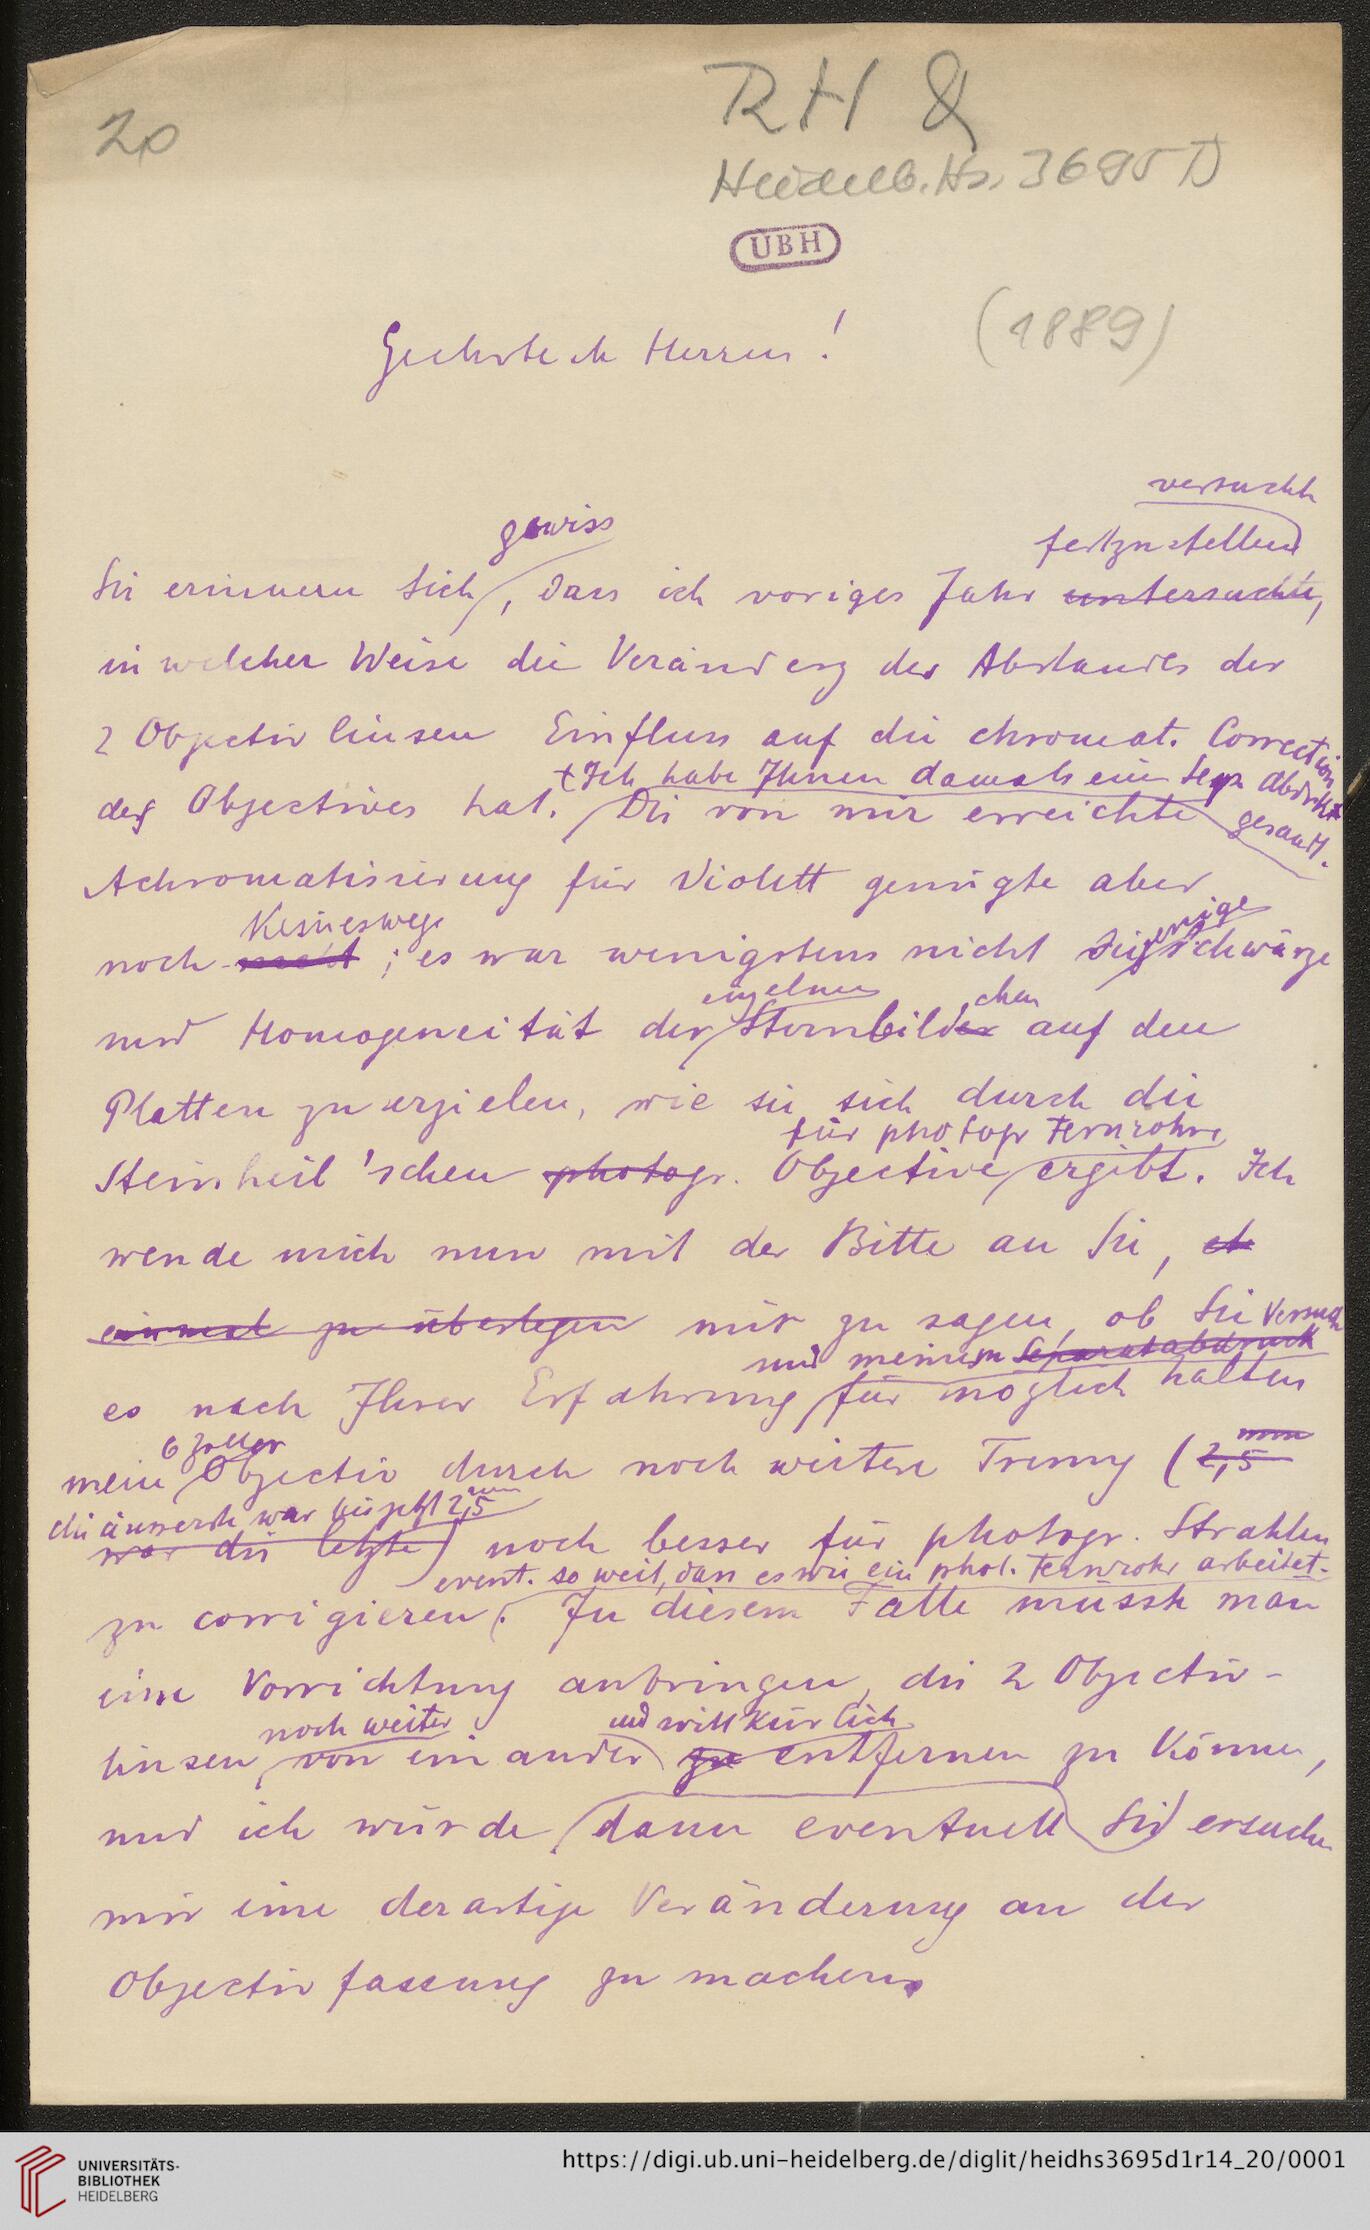 20
RH 8
Heidelb. Hs. 3695 D
UBH
(1889)
Geehrteste Herren!
versuchte
gewiss
festzustellen
Sie erinnern Sich, dass ich voriges Jahr untersuchte,
in welcher Weise die Veränderg des Abstandes der
2 Objectivlinsen Einfluss auf die chromat. Correction
+ Ich habe Ihnen damals ein Sep. Abdruck gesandt.
des Objectives hat. Die von mir erreichte
Achromatisierung für Violett genügte aber
Keineswegs
jenige
noch nicht; es war wenigstens nicht die Schwärze
einzelnen
chen
und Homogeneität der Sternbilder auf den
Platten zu erzielen, wie sie sich durch die
für photogr Fernrohre
Steinheil'schen photogr. Objective ergibt. Ich
wende mich nun mit der Bitte an Sie,
einmal zu überlegen mir zu sagen, ob Sie
und meinem Separatabdruck
es nach Ihrer Erfahrung für möglich halten
6 Zoller
mm
mein Objectiv durch noch weitere Trenng (2,5
die äusserste war bis jetzt 2,5 mm
war die letzte) noch besser für photogr. Strahlen
event. so weit, dass es wie ein phot. Fernrohr arbeitet.
zu corrigieren. In diesem Falle müsste man
eine Vorrichtung anbringen, die 2 Objectiv-
noch weiter
und willkürlich
linsen von einander zu entfernen zu können,
und ich würde dann eventuell Sie ersuchen
mir eine derartige Veränderung an der
Objectivfassung zu machen.
UNIVERSITÄTS-
BIBLIOTHEK
HEIDELBERG
https://digi.ub.uni-heidelberg.de/diglit/heidhs3695d1r14_20/0001